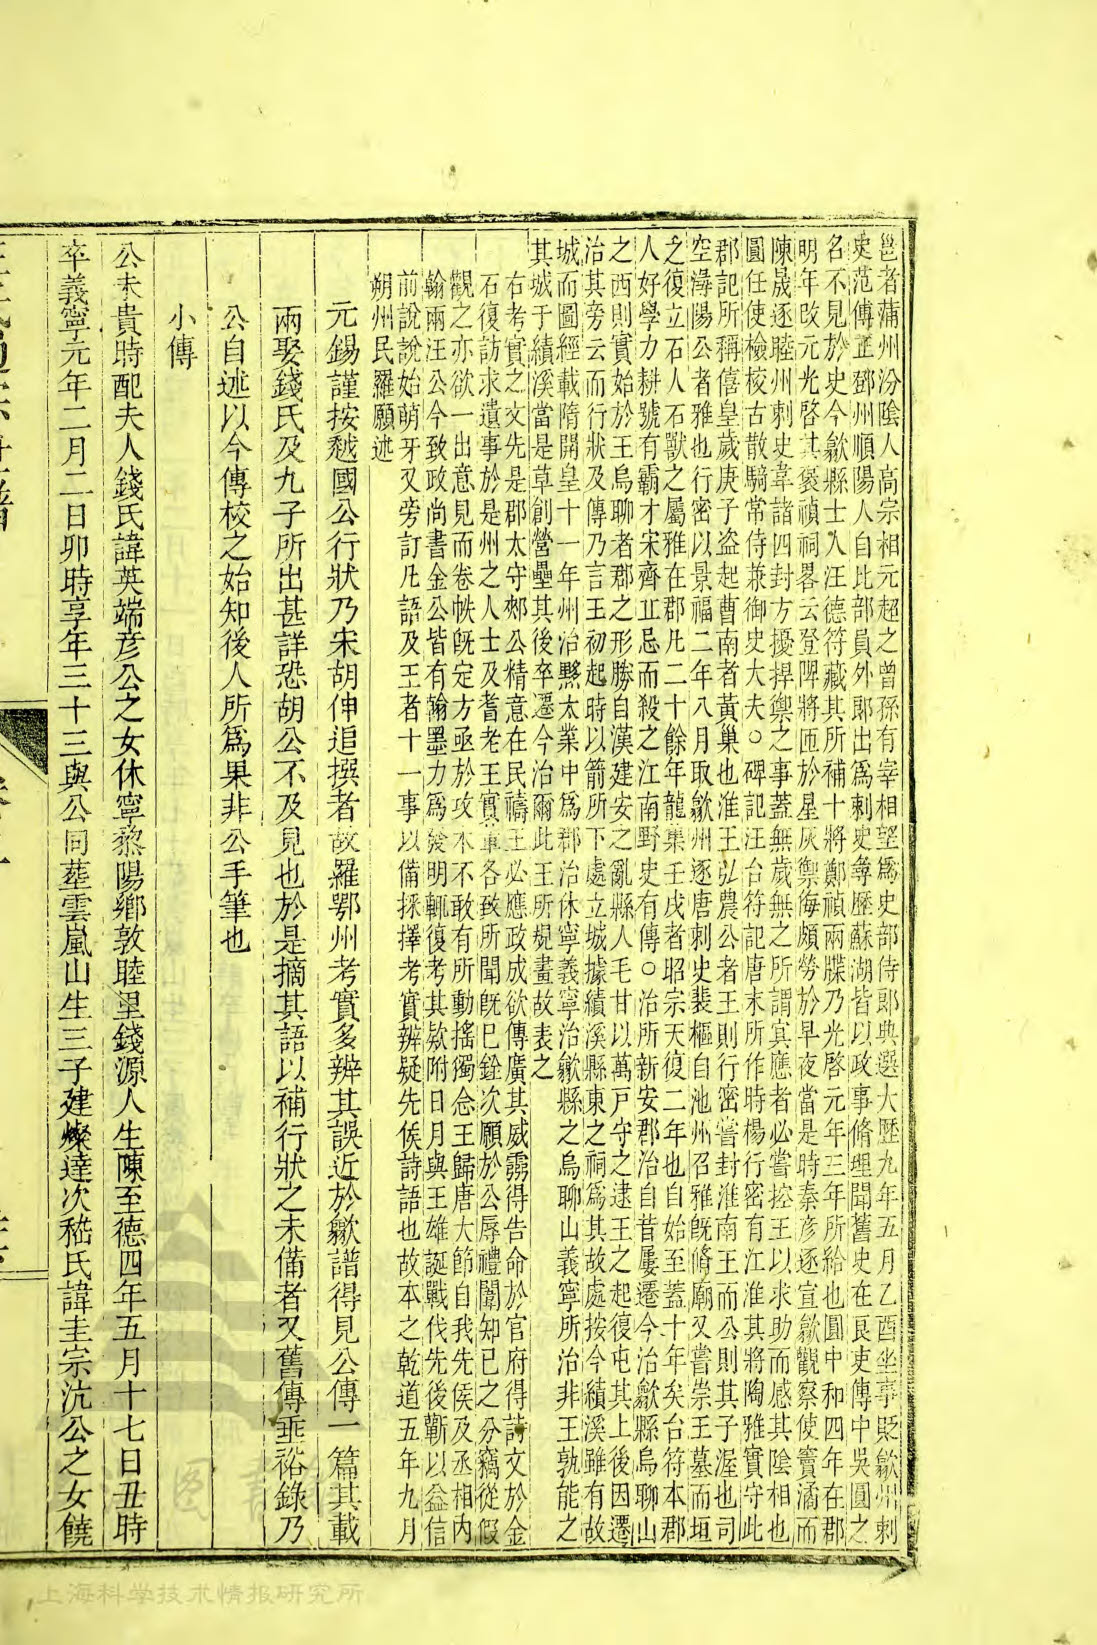 邕者蒲州汾陰人高宗相元超之曾孫有宰相望爲史部侍郞典選大歷九年五月乙酉坐事貶歙州刺
史范傳正鄧州順陽人自比部員外郞出爲刺史尋歷蘇湖皆以政事脩理聞舊史在良吏傳中吳圓之
名不見於史今歙縣士人汪德符藏其所補十將鄭禎兩牒乃光啓元年三年所給也圓中和四年在郡
明年改元光啓其褒禎祠畧云登陴將匝於星灰禦侮頗勞於早夜當是時秦彦逐宣歙觀察使竇潏而
陳晟逐睦州刺史韋諸四封方擾捍禦之事蓋無歲無之所謂寅應者必嘗控王以求助而感其陰相也
圓任使檢校古散騎常侍兼御史大夫○碑記汪台符記唐末所作時楊行密有江淮其將陶雅實守此
郡記所稱僖皇歲庚子盗起曹南者黃巢也淮王弘農公者王則行密嘗封淮南王而公則其子渥也司
空潯陽公者雅也行密以景福二年八月取歙州逐唐刺史裴樞自池州召雅旣脩廟又嘗崇王墓而垣
之復立石人石獸之屬雅在郡凡二十餘年龍集壬戌者昭宗天復二年也自始至蓋十年矣台符本郡
人好學力耕號有霸才宋齊丘忌而殺之江南野史有傳○治所新安郡治自昔屢遷今治歙縣烏聊山
之西則實始於王烏聊者郡之形勝自漢建安之亂縣人毛甘以萬戸守之逮王之起復屯其上後因遷
治其旁云而行狀及傳乃言王初起時以箭所下處立城據績溪縣東之祠爲其故處按今績溪雖有故
城而圖經載隋開皇十一年州治黟太業中爲郡治休寧義寧治歙縣之烏聊山義寧所治非王孰能之
其城于績溪當是草創營壘其後卒遷今治爾此王所規畫故表之
右考實之文先是郡太守郟公精意在民禱王必應政成欲傳廣其威靈得告命於官府得詩文於金
石復訪求遺事於是州之人士及耆老王實事各致所聞旣巳銓次願於公辱禮闈知巳之分竊從假
觀之亦欲一出意見而卷帙旣定方亟於攻木不敢有所動搖獨念王歸唐大節自我先侯及丞相内
翰兩汪公今致政尚書金公皆有翰墨力爲發明輒復考其欵附日月與王雄誕戰伐先後蘄以益信
前說說始萌牙又旁訂凡語及王者十一事以備採擇考實辨疑先侯詩語也故本之乾道五年九月
朔州民羅願述
元錫謹按越國公行狀乃宋胡伸追撰者故羅鄂州考實多辨其誤近於歙譜得見公傳一篇其載
兩娶錢氏及九子所出甚詳恐胡公不及見也於是摘其語以補行狀之未備者又舊傳垂裕錄乃
公自述以今傳校之始知後人所爲果非公手筆也
小傳
公未貴時配夫人錢氏諱英端彦公之女休寧黎陽鄉敦睦里錢源人生陳至德四年五月十七日丑時
卒義寧元年二月二日卯時享年三十三與公同塟雲嵐山生三子建燦達次嵇氏諱圭宗沆公之女饒
上海科学技术情报研究所